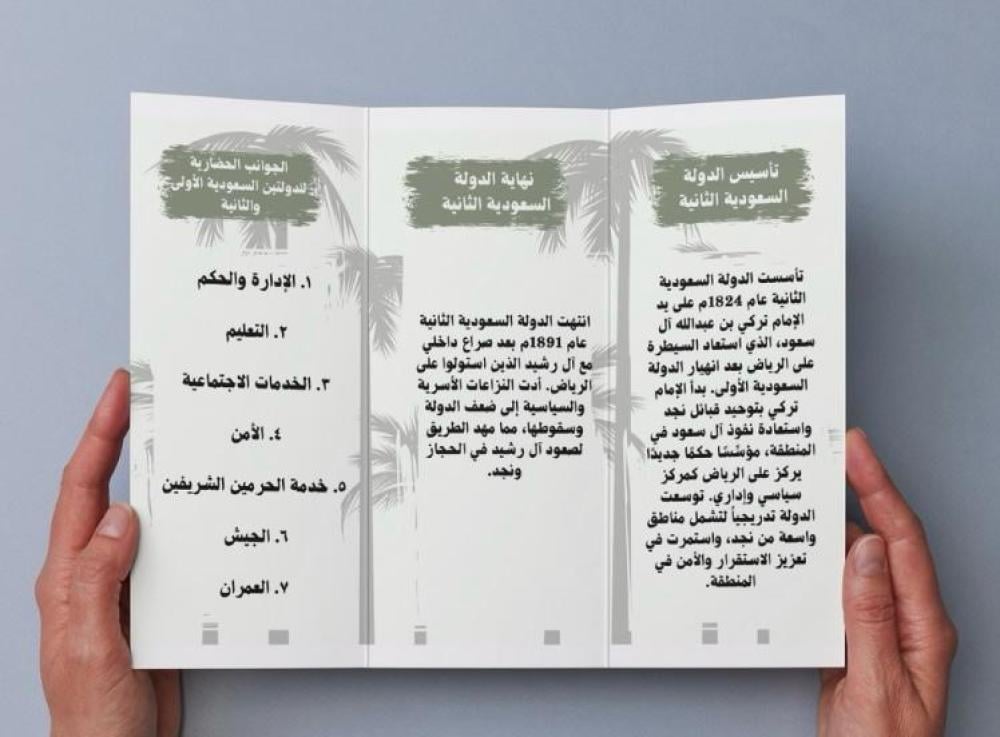 تأسيس الدولة
السعودية الثانية
تأسست الدولة السعودية
الثانية عام 1824م على يد
الإمام تركي بن عبدالله آل
سعود، الذي استعاد السيطرة
على الرياض بعد انهيار الدولة
السعودية الأولى. بدأ الإمام
تركي بتوحيد قبائل نجد
واستعادة نفوذ آل سعود في
المنطقة، مؤسِّسًا حكمًا جديدًا
يركز على الرياض كمركز
سياسي وإداري. توسعت
الدولة تدريجياً لتشمل مناطق
واسعة من نجد، واستمرت في
تعزيز الاستقرار والأمن في
المنطقة.
نهاية الدولة
السعودية الثانية
انتهت الدولة السعودية الثانية
عام 1891م بعد صراع داخلي
مع آل رشيد الذين استولوا على
الرياض. أدت النزاعات الأسرية
والسياسية إلى ضعف الدولة
وسقوطها، مما مهد الطريق
لصعود آل رشيد في الحجاز
ونجد.
الجوانب الحضارية
للدولتين السعودية الأولى
والثانية
١. الإدارة والحكم
٢. التعليم
٣. الخدمات الاجتماعية
٤. الأمن
٥. خدمة الحرمين الشريفين
٦. الجيش
٧. العمران